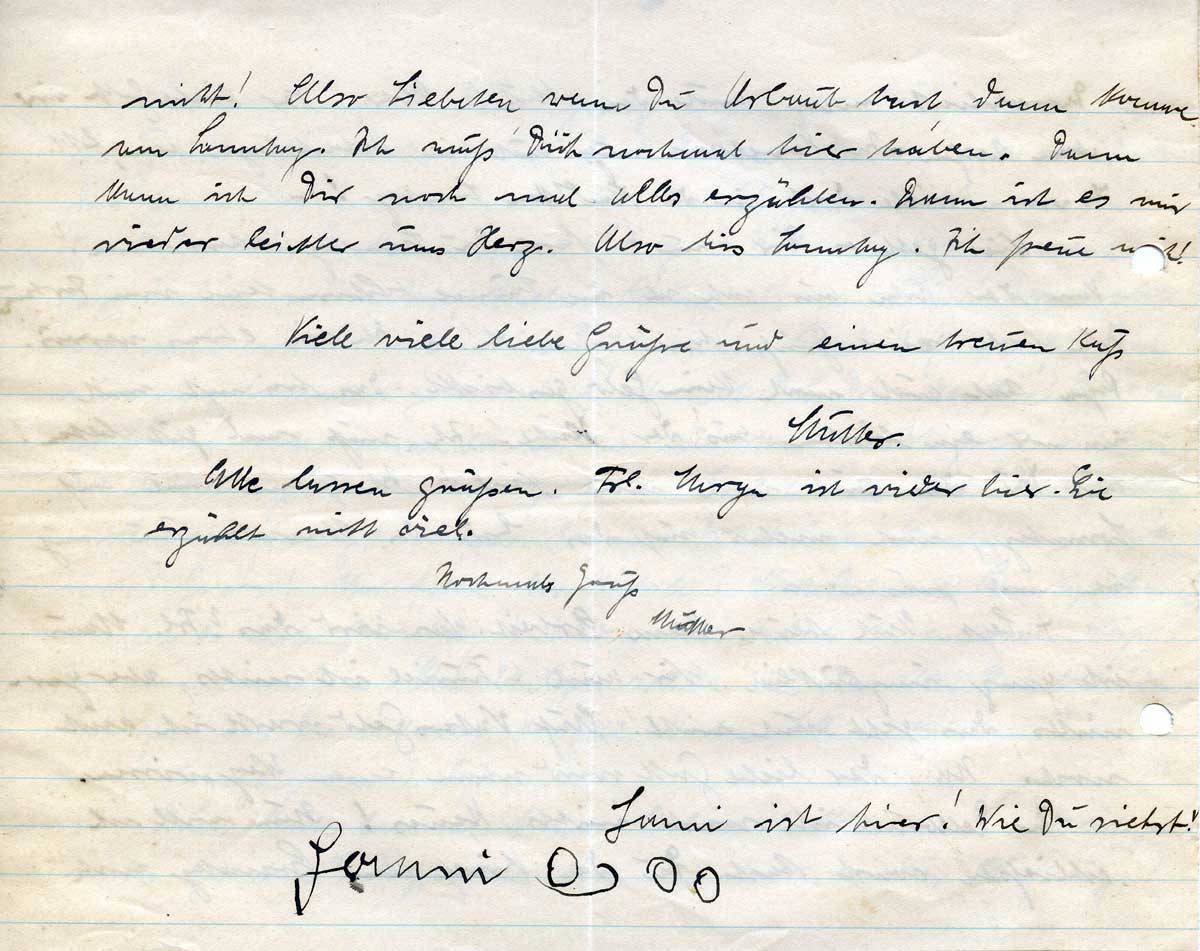 nicht! Also Liebsten wenn Du Urlaub hast dann komme
am Sonntag. Ich muß Dich nochmal hier haben. Dann
kann ich Dir noch mal alles erzählen. Dann ist es mir
wieder leichter ums Herz. Also bis Sonntag. Ich freue mich!
Viele viele liebe Grüße und einen treuen Kuß
Mutter.
Alle lassen grüßen. Frl. ist wieder hier. Sie
erzählt nicht viel.
Nochmals Gruß
Mutter
ist hier! Wie Du siehst!